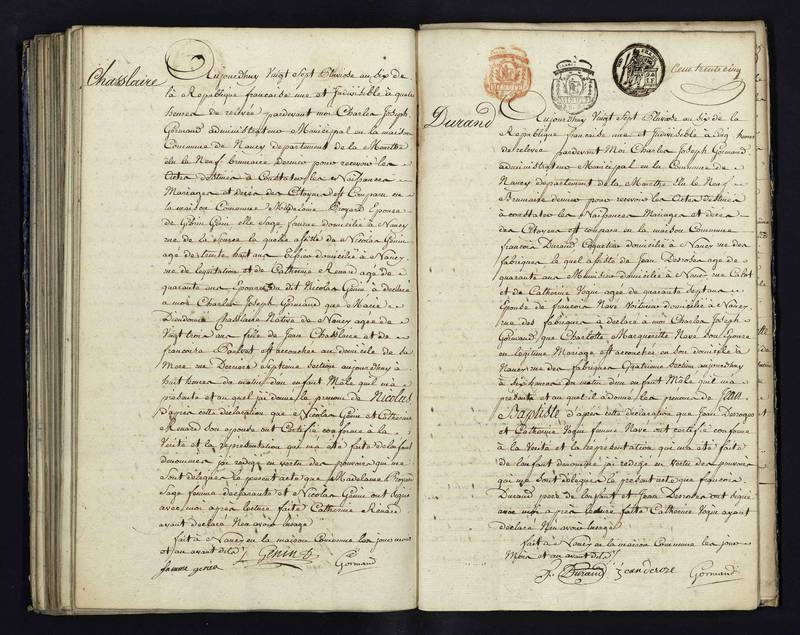 Chasslaire
Aujourdhuy Vaingt Sept Pluviose an six de
la Republique francaise une et Indivisible à quatre
heures de relevée pardevant moi Charles Joseph
Gormand administrateur Municipal en la maison
Commune de Nancy departement de la Meurthe
élu le Neuf brumaire dernier pour recevoir les
Actes destinés à Constater les Naissances
Mariages et décès des Citoyens est Comparu en
la maison Commune Madelaine Epouse
de Genin elle Sage femme domicilié à Nancy
rue de la Source la quelle assisté de Nicolas Genin
agé de trente huit ans domicilié à Nancy
rue de et de Catherine Renard agé de
quarante ans Epouse du dit Nicolas Genin à déclaré
à moi Charles Joseph Gormand que Marie
Dieudonné Chasslaire Native de Nancy agée de
Vaingt trois ans fille de Jean Chasslaire et de
francoise est accouchée au domicile de sa
Mere rue septieme Section aujourdhuy à
huit heures du matin d'un enfant Mâle quel m'a
présenté et au quel jai donné le prenom de Nicolas
d'apres cette déclaration que Nicolas Genin et Catherine
Renard son epouse ont Certifié conforme à la
Verité et la représentation qui m'a été faite de l'enfant
denommés j'ai redigé en vertu des pouvoirs qui me
Sont délégués le present acte que Madelaine
Sage femme declarante et Nicolas Genin ont signé
avec moi apres lecture faite Catherine Renard
ayant declaré N'en avoir l'usage
fait à Nancy en la maison Commune les jours mois
et an avant dits
femme genin
Genin
Gormand
Cent trente cinq
Durand
Aujourdhuy Vaingt Sept Pluviose an Six de la
Republique francaise une et Indivisible à cinq heures
de relevée pardevant Moi Charles Joseph Gormand
administrateur Municipal en la Commune de
Nancy departement de la Meurthe élu le Neuf
Brumaire dernier pour recevoir les Actes destinés
à constater les Naissances Mariages et décès
des Citoyens est comparu en la maison Commune
francois Durand Coquetier domicilié à Nancy rue des
fabriques le quel assisté de Jean Desroses agé de
quarante ans domicilié à Nancy rue Calot
et de Catherine Voque agée de quarante Sept ans
Epouse de francois Nave Voiturier domicilié à Nancy
rue des fabriques à déclaré à moi Charles Joseph
Gormand que Charlotte Margueritte Nave son Epouse
en légitime Mariage est accouchée en son domicile à
Nancy rue des fabriques Quatrieme Section aujourdhuy
à Sept heures du matin d'un enfant Mâle quil m'a
présenté et au quel il a donné les prenoms de Jean
Baptiste d'apres cette déclaration que Jean Desroses
et Catherine Voque femme Nave ont certifié conforme
à la Verité et la Représentation qui m'a été faite
de l'enfant denommé j'ai redigé en Vertu des pouvoirs
qui me sont délégués le present acte que francois
Durand pere de l'enfant et Jean Desroses ont signé
avec moi apres lecture faite Catherine Voque ayant
déclaré N'en avoir l'usage
fait à Nancy en la maison Commune les jour
Mois et an avant dits
f. Durand
Jean deroze
Gormand